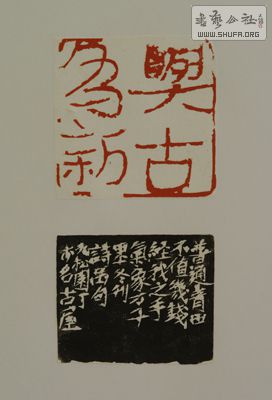 书艺公社
WWW.SHUFA.ORG
與古
為新
普通青田
不值幾錢
經我之手
氣象万千
墨冬刊
詩品句
松園丁
古屋